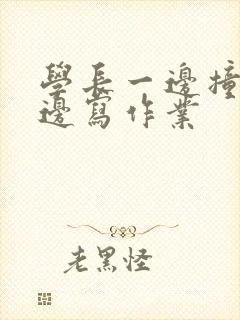 學長一邊撞
邊寫作業
老黑怪